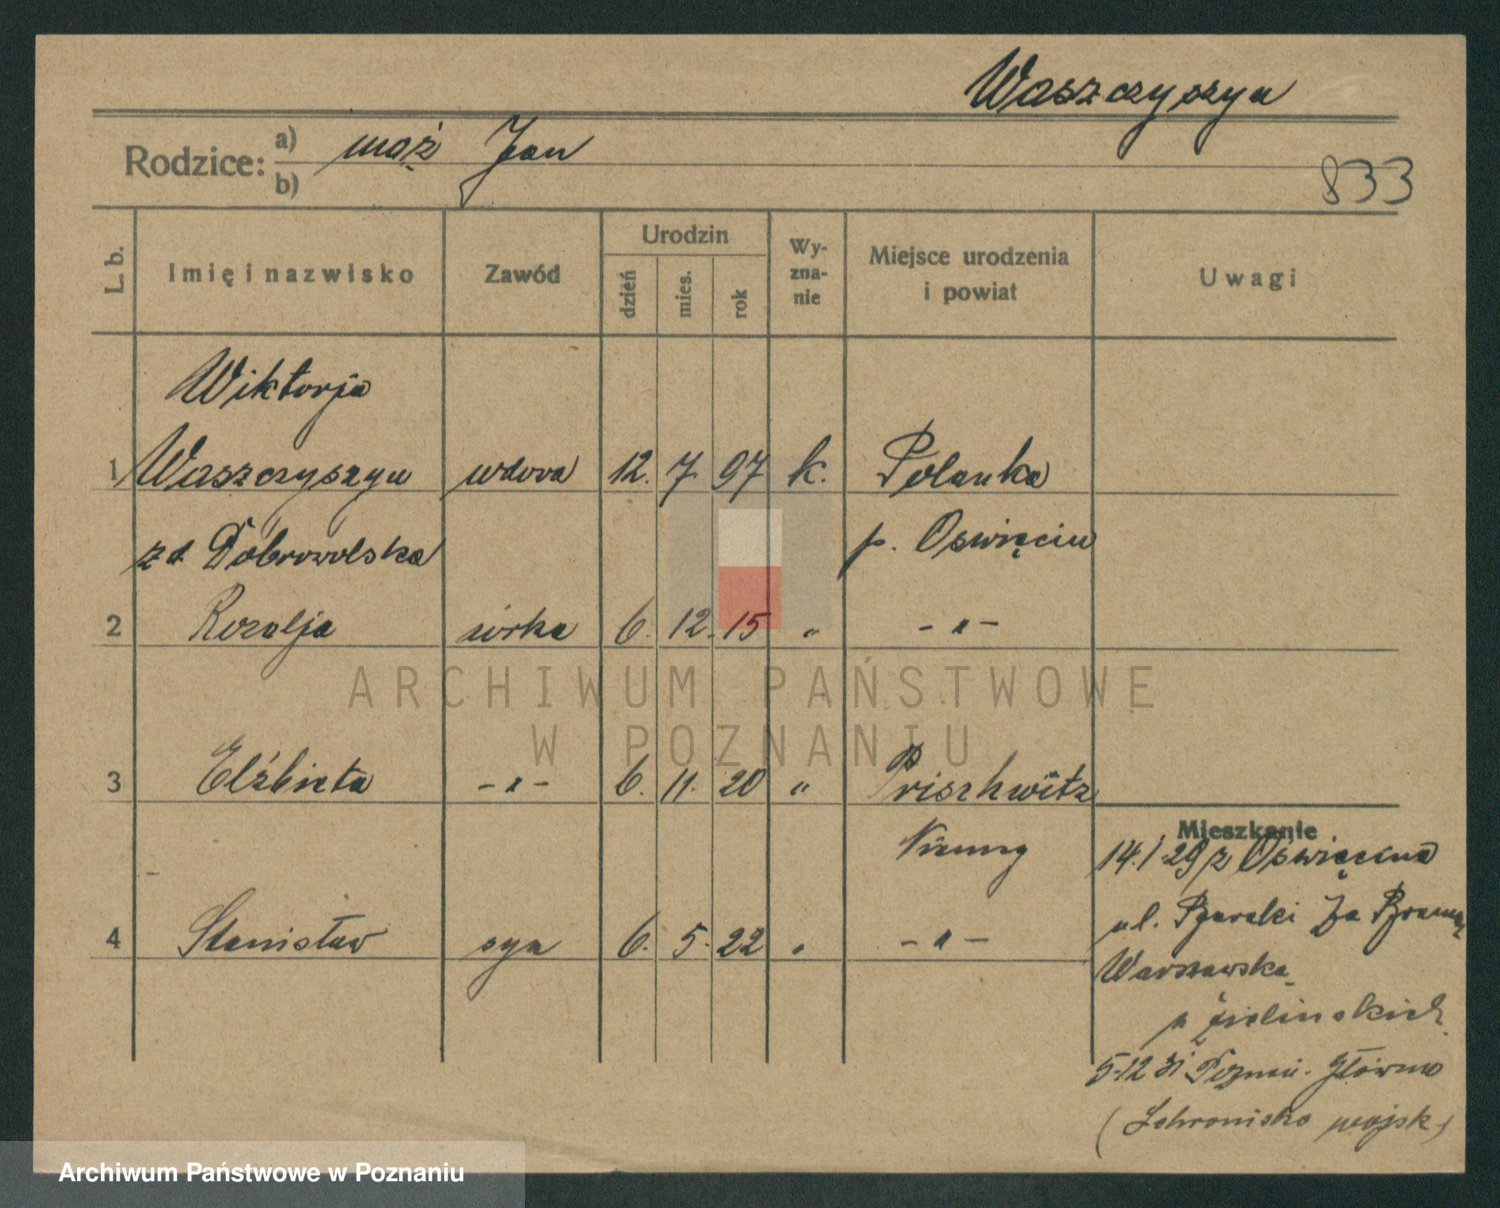 Waszczyszyn
Rodzice: a) mąż Jan
b)
833
L. b.
Imię i nazwisko
Zawód
Urodzin
dzień
mies.
rok
Wy-
zna-
nie
Miejsce urodzenia
i powiat
Uwagi
Wiktorja
1 Waszczyszyn wdova 12. 7 97 k. Polanka
zd. Dobrowolska p. Oświęcim
2 Rozalja córka 6. 12. 15 „ -„-
3 Elżbieta -„- 6. 11. 20 „ Prischwitz
Mieszkanie
14.1 29 z Oświęcima
4 Stanisław syn 6. 5. 22 „ -„-
ul. Za Bramą
Warszawska
p Zielinskich
5-12 31 Poznań. Główna
(Schronisko wojsk)
ARCHIWUM PAŃSTWOWE
W POZNANIU
Archiwum Państwowe w Poznaniu